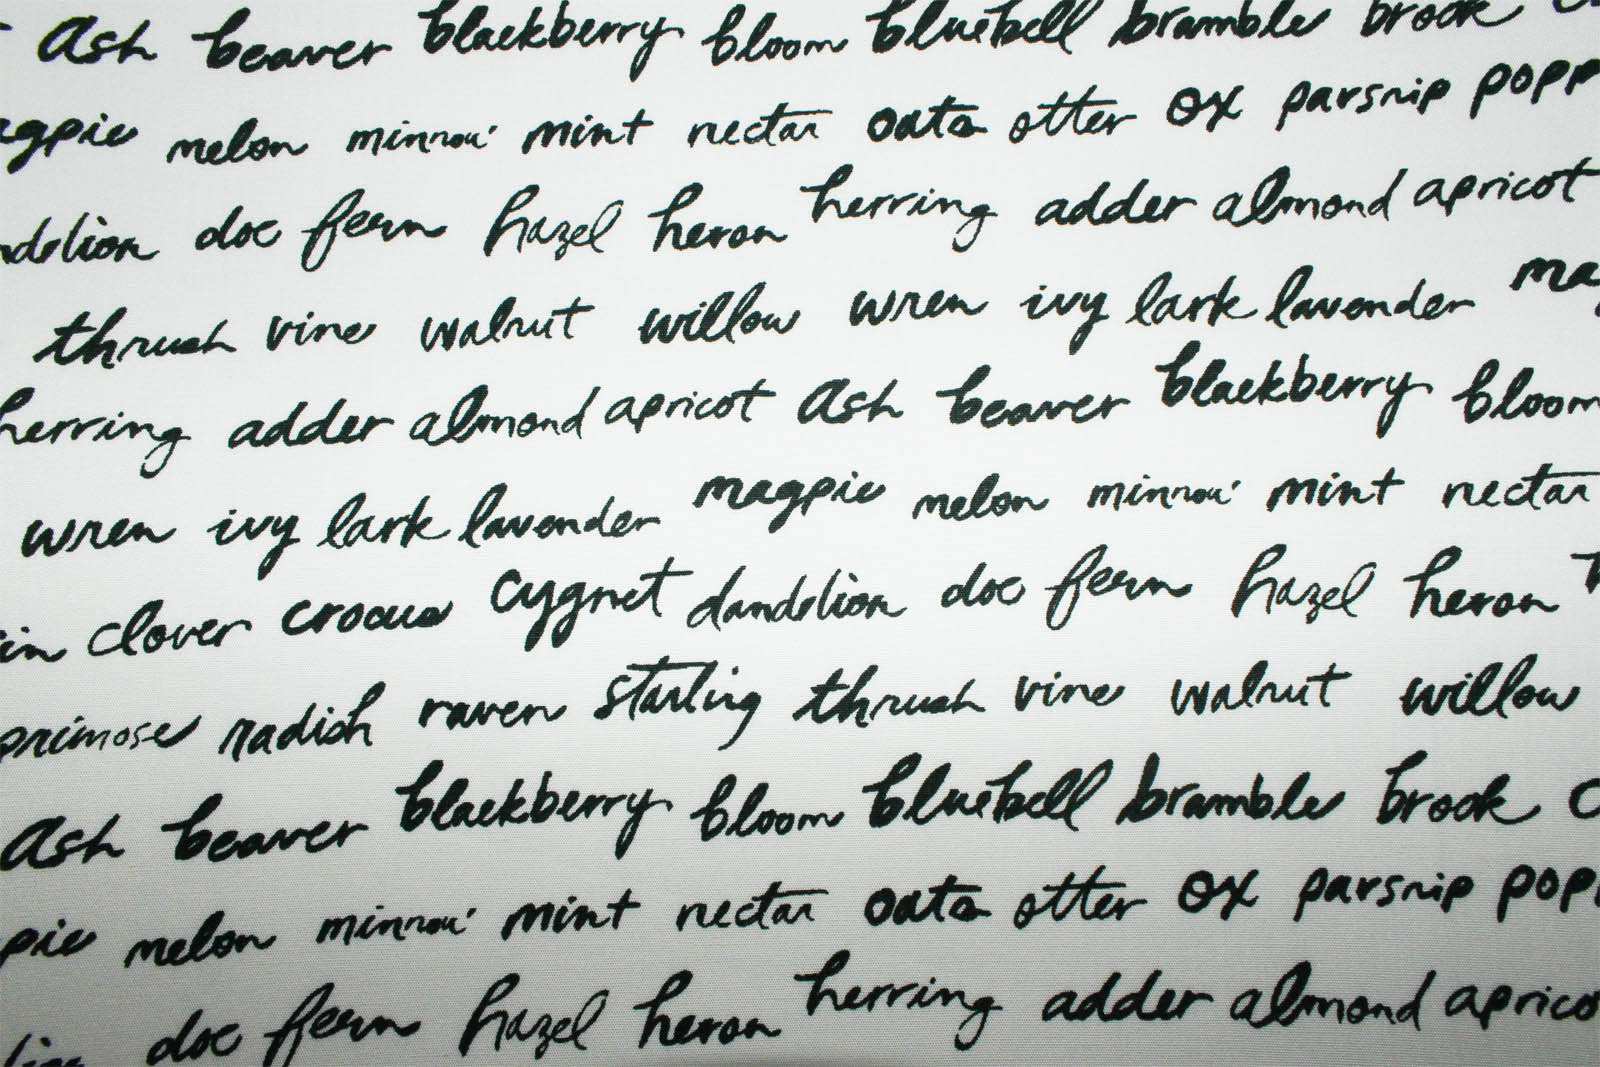 ash beaver blackberry bloom bluebell bramble brook
magpie melon minnow mint nectar oats otter ox parsnip popp
ndelion doe fern hazel heron herring adder almond apricot
thrush vine walnut willow wren ivy lark lavender mag
herring adder almond apricot ash beaver blackberry bloom
wren ivy lark lavender magpie melon minnow mint nectar
in clover crocus cygnet dandelion doe fern hazel heron
primose radish raven starling thrush vine walnut willow
ash beaver blackberry bloom bluebell bramble brook
pie melon minnow mint nectar oats otter ox parsnip pop
doe fern hazel heron herring adder almond aprico